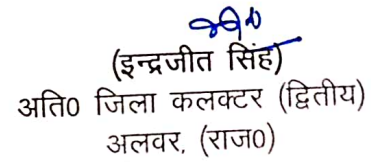 (इन्द्रजीत सिंह)
अति0 जिला कलक्टर (द्वितीय)
अलवर, (राज0)